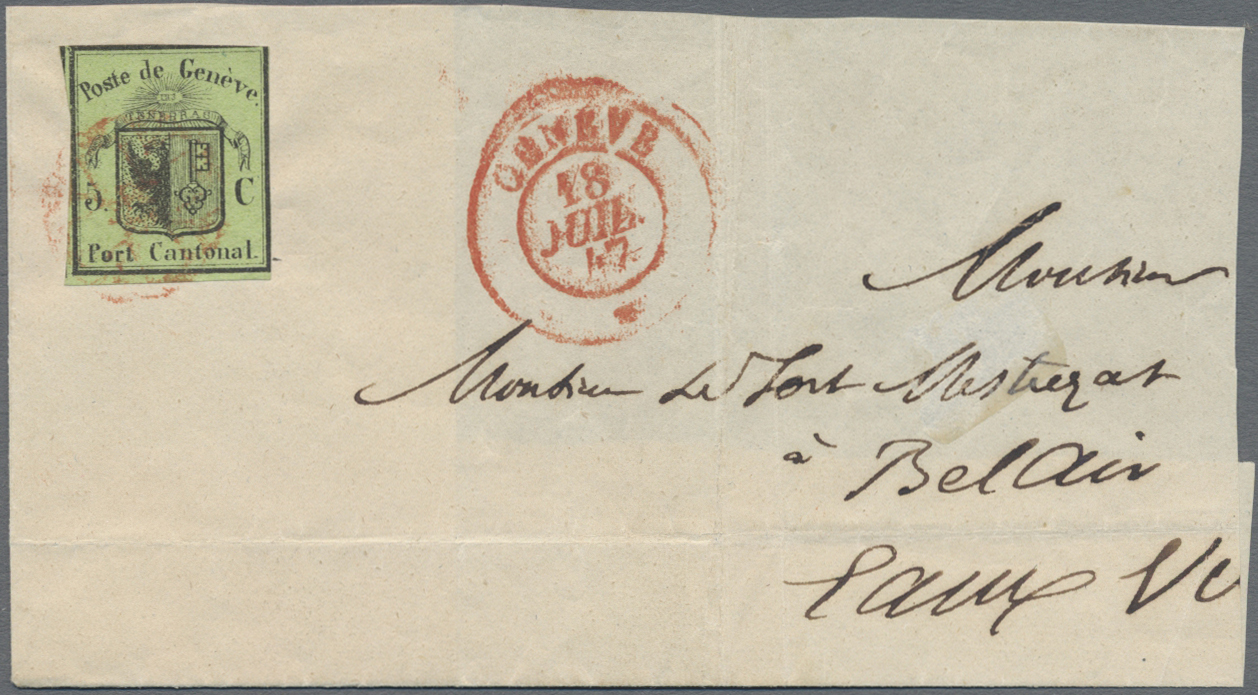 Poste de Genève.
5. C
Port Cantonal.
GENÈVE
18
JUIL.
47
Monsieur
Monsieur Le Fort Mestrezat
à Bel Air
Eaux Vi